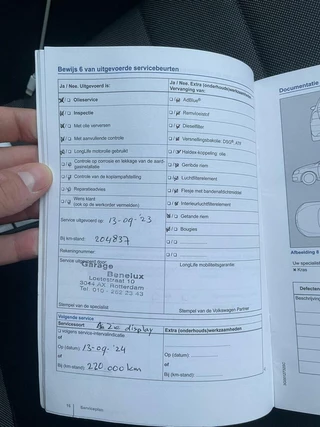 Bewijs 6 van uitgevoerde servicebeurten
Ja / Nee. Uitgevoerd is:
Olieservice
Inspectie
Met olie verversen
Met aanvullende controle
LongLife motorolie gebruikt
Controle op corrosie en lekkage van de aard-
gasinstallatie
Controle van de koplampafstelling
Reparatieadvies
Wens klant
(ook op de werkorder vermelden)
Service uitgevoerd op: 13-09-'23
Bij km-stand: 204837
Rekeningnummer:
Service uitgevoerd door:
Garage
Benelux
Loetestraat 10
3044 AX. Rotterdam
Tel. 010 - 262 23 43
Stempel van de specialist
Ja / Nee. Extra (onderhouds)werkzaamheden
Vervanging van:
AdBlue®
Remvloeistof
Dieselfilter
Versnellingsbakolie: DSG®
Haldex-koppeling olie
Geribde riem
Luchtfilterelement
Flesje met bandenafdichtmiddel
Interieurluchtfilterelement
Getande riem
Bougies
LongLife mobiliteitsgarantie:
Stempel van de Volkswagen Partner
Volgende service
Servicesoort: display
volgens service-intervalindicatie
of
Op (datum): 13-09-'24
of
Bij (km-stand): 220.000 km
Extra (onderhouds)werkzaamheden
Op (datum):
of
Bij (km-stand):
Serviceplan
Documentatie
Afbeelding 6
Uw specialist
Kras
Defecten